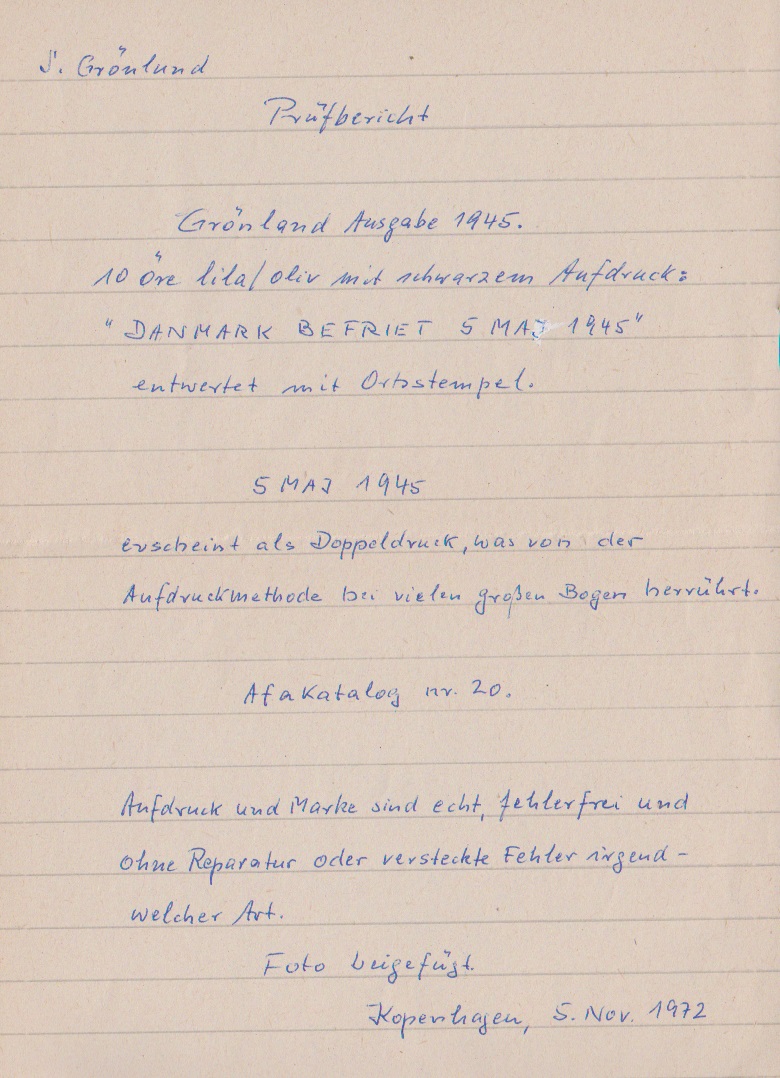 J. Grönlund
Prüfbericht
Grönland Ausgabe 1945.
10 öre lila/oliv mit schwarzem Aufdruck:
"DANMARK BEFRIET 5 MAJ 1945"
entwertet mit Ortsstempel.
5 MAJ 1945
erscheint als Doppeldruck, was von der
Aufdruckmethode bei vielen großen Bogen herrührt.
Afa Katalog nr. 20.
Aufdruck und Marke sind echt, fehlerfrei und
ohne Reparatur oder versteckte Fehler irgend-
welcher Art.
Foto beigefügt.
Kopenhagen, 5. Nov. 1972